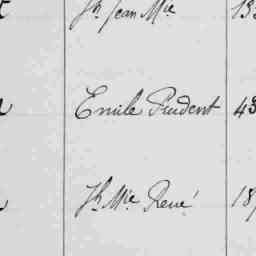 Jh Jean Mie
Emile Prudent 43
Jh Mie René 18